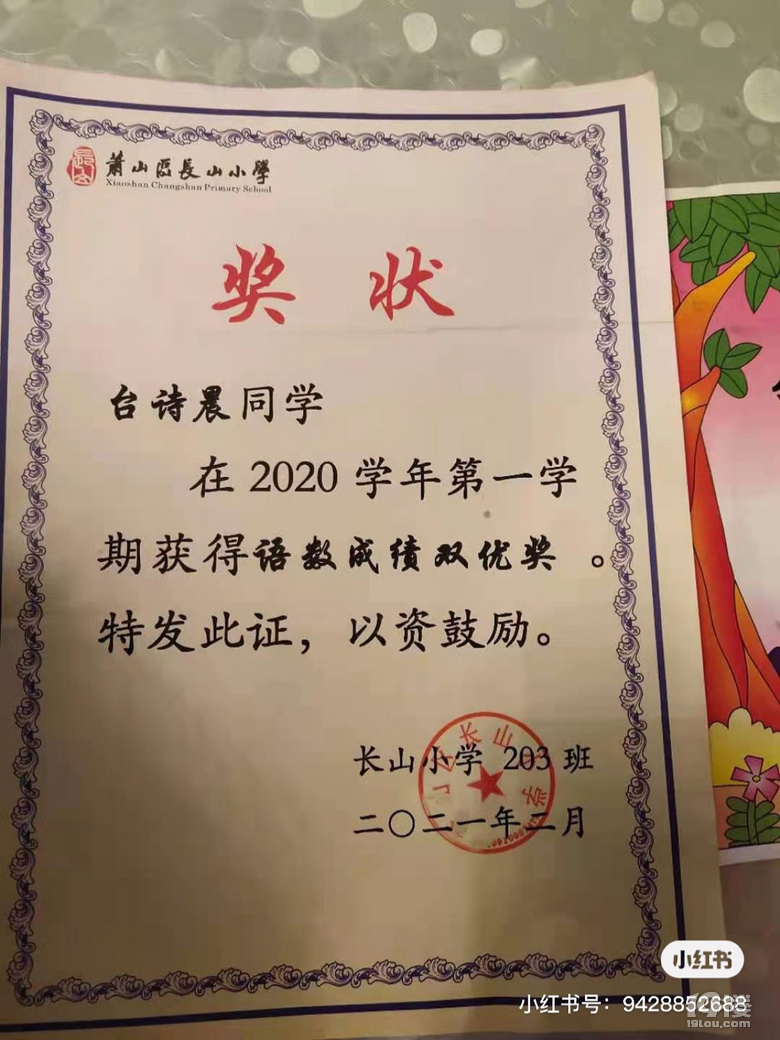 萧山区長山小學
Xiaoshan Changshan Primary School
奖 状
台诗晨同学
在 2020 学年第一学
期获得语数成绩双优奖 。
特发此证，以资鼓励。
长山小学 203 班
二〇二一年二月
小红书
小红书号：9428852688
19楼
19lou.com